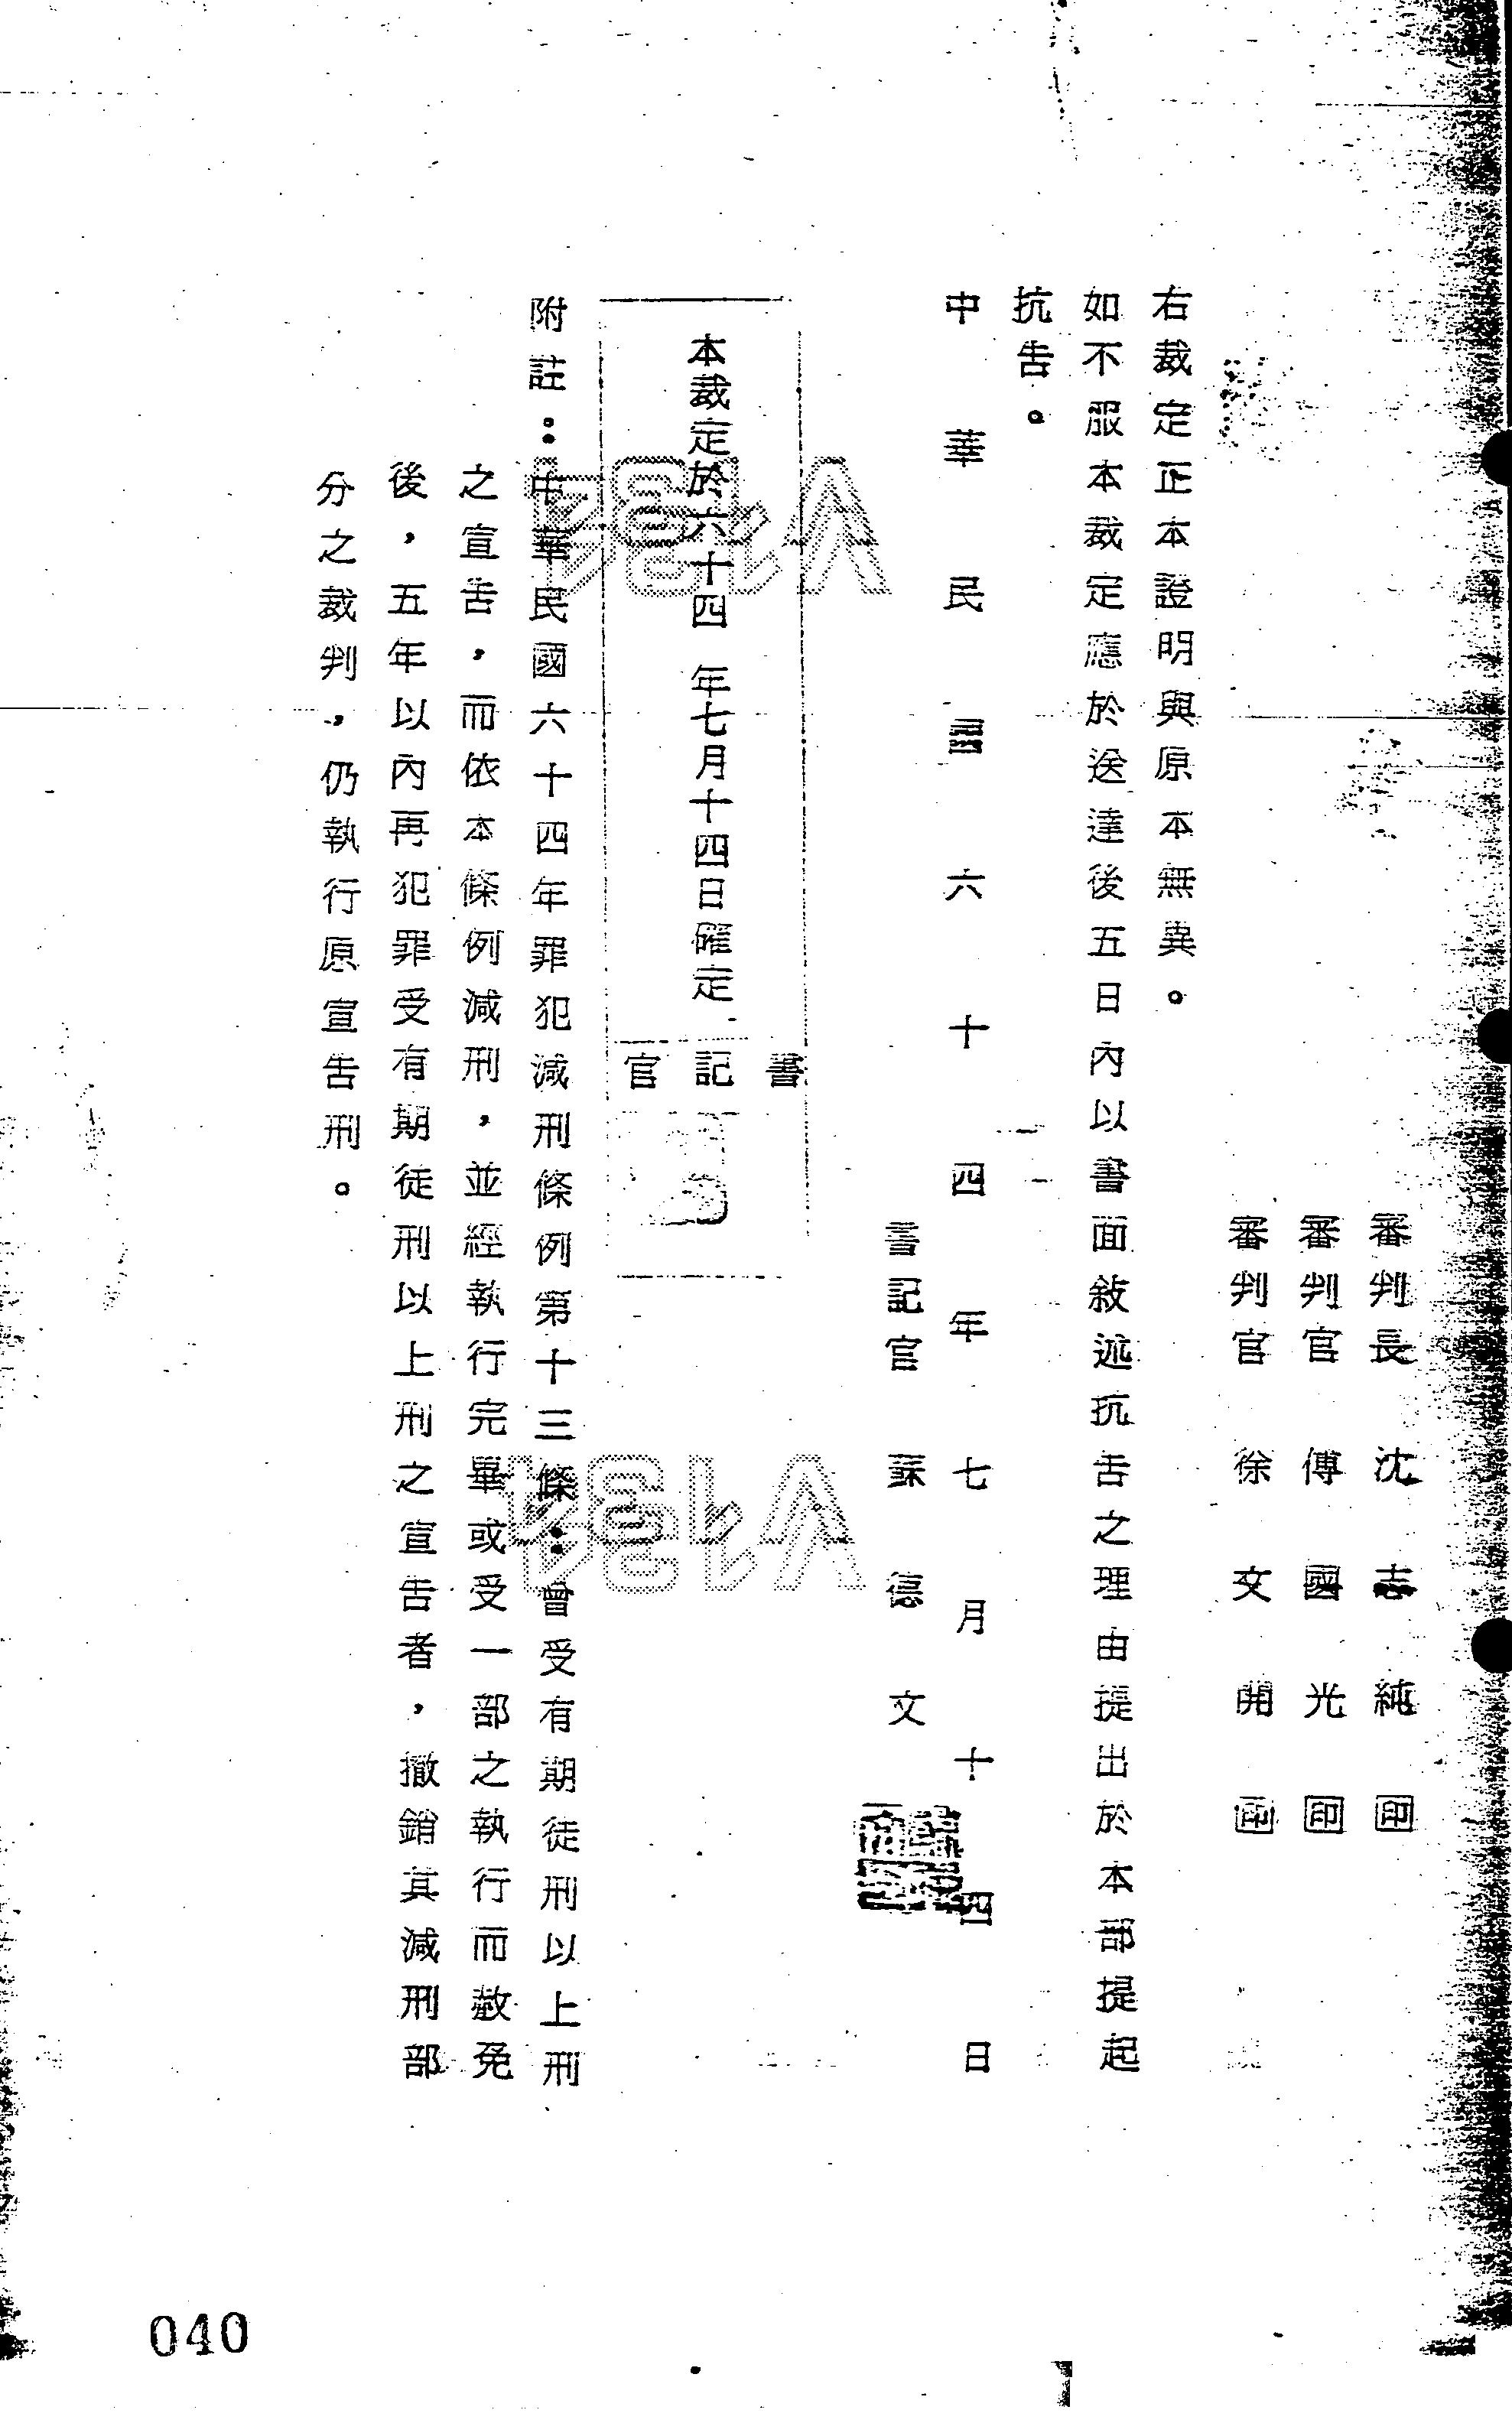 審判長 沈志純 印
審判官 傅國光 印
審判官 徐文開 印
右裁定正本證明與原本無異。
如不服本裁定應於送達後五日內以書面敘述抗告之理由提出於本部提起
抗告。
中華民國六十四年七月十四日
書記官 蘇德文
本裁定於六十四年七月十四日確定
書記官
附註:中華民國六十四年罪犯減刑條例第十三條:曾受有期徒刑以上刑
之宣告,而依本條例減刑,並經執行完畢或受一部之執行而赦免
後,五年以內再犯罪受有期徒刑以上刑之宣告者,撤銷其減刑部
分之裁判,仍執行原宣告刑。
040